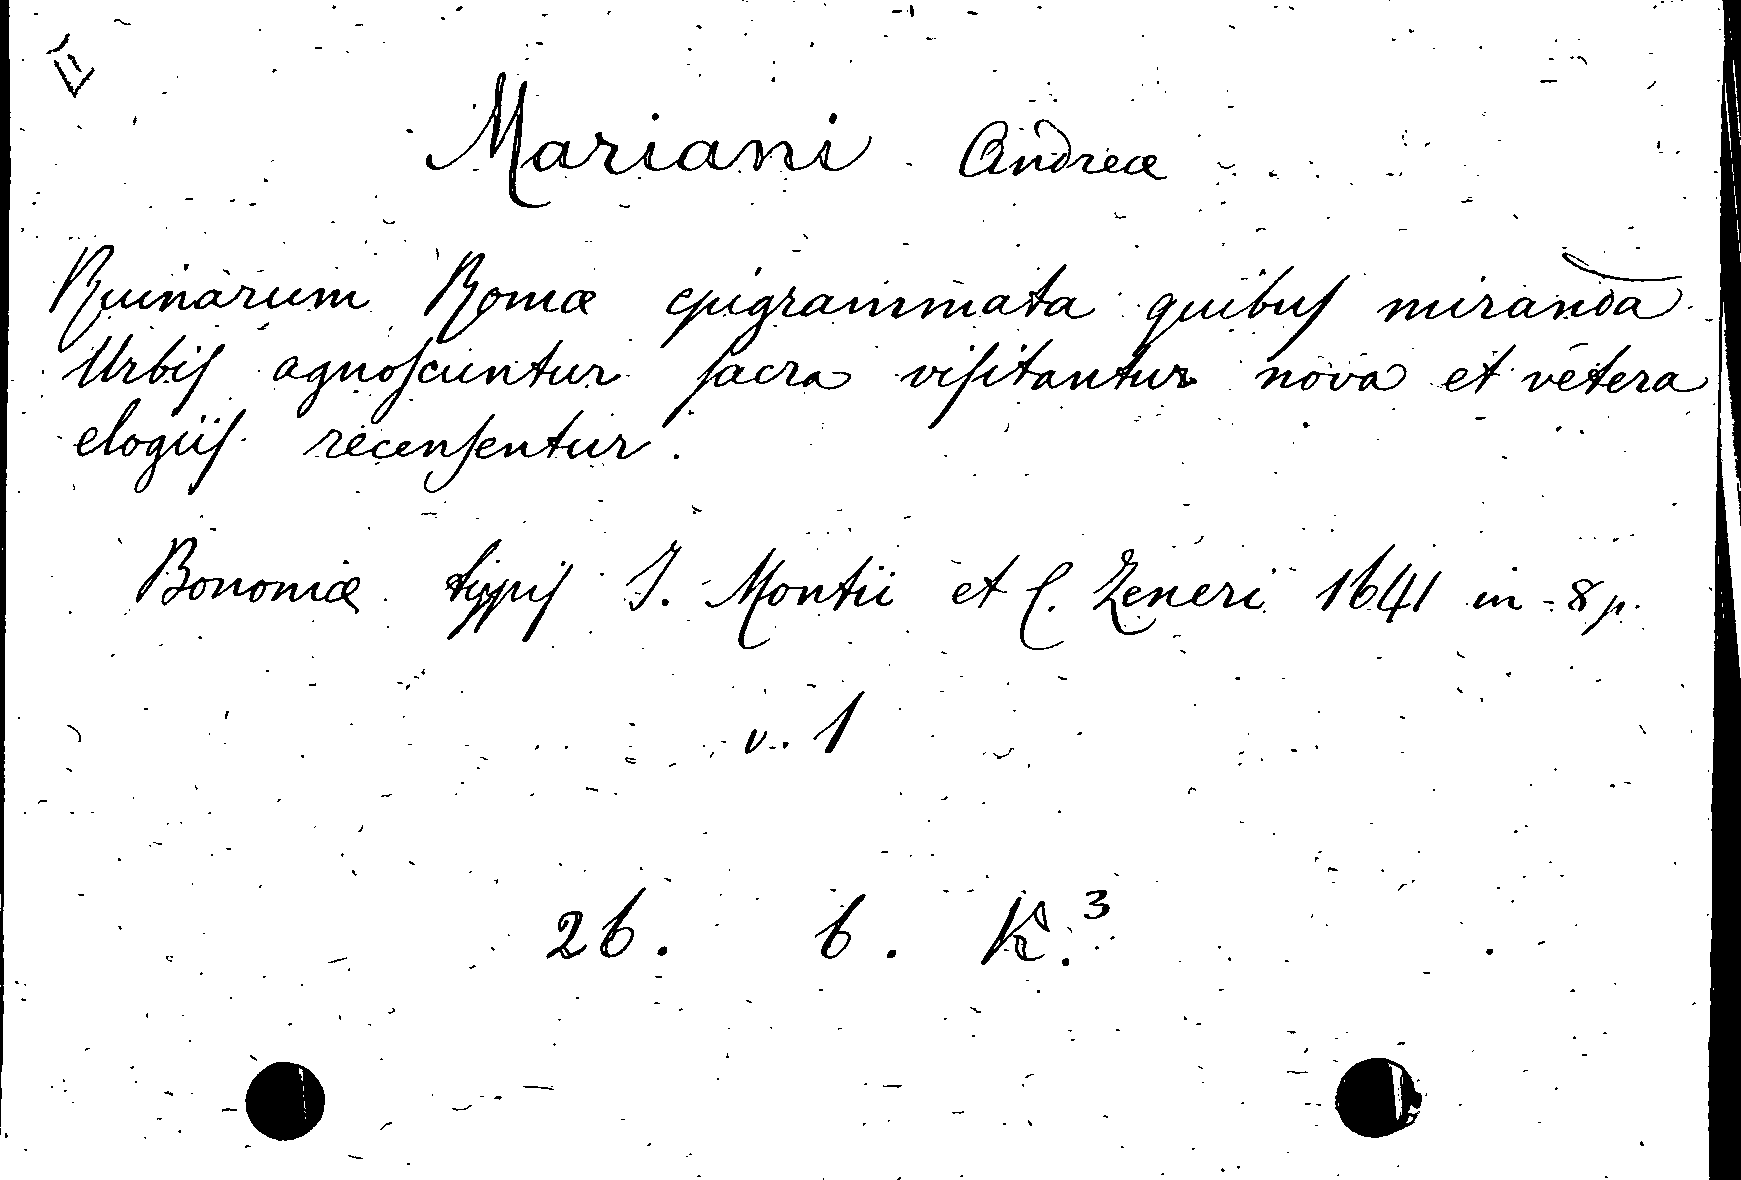 Mariani Andreæ
Ruinarum Romæ epigrammata quibuſ miranda
Urbiſ agnoſcuntur ſacra viſitantur nova et vetera
elogiiſ recenſentur.
Bononiæ typiſ J. Montii et C. Zeneri 1641 in-8 p.
v. 1
26. 6. K.³